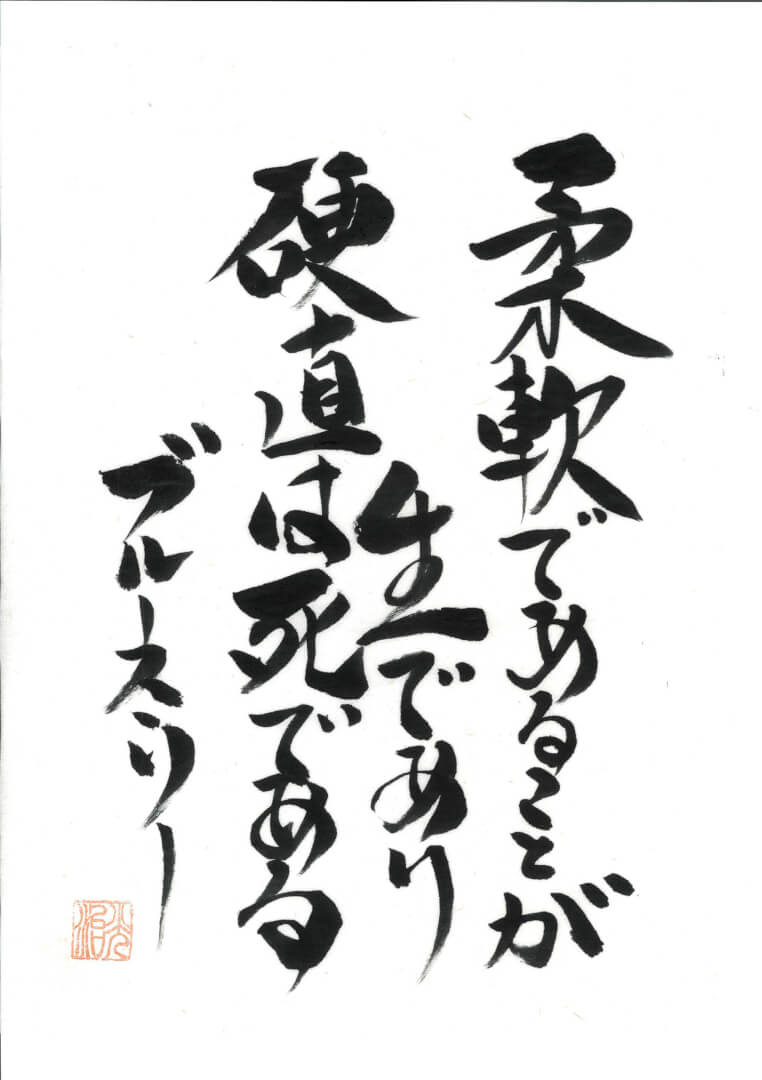 柔軟であることが
生であり
硬直は死である
ブルースリー